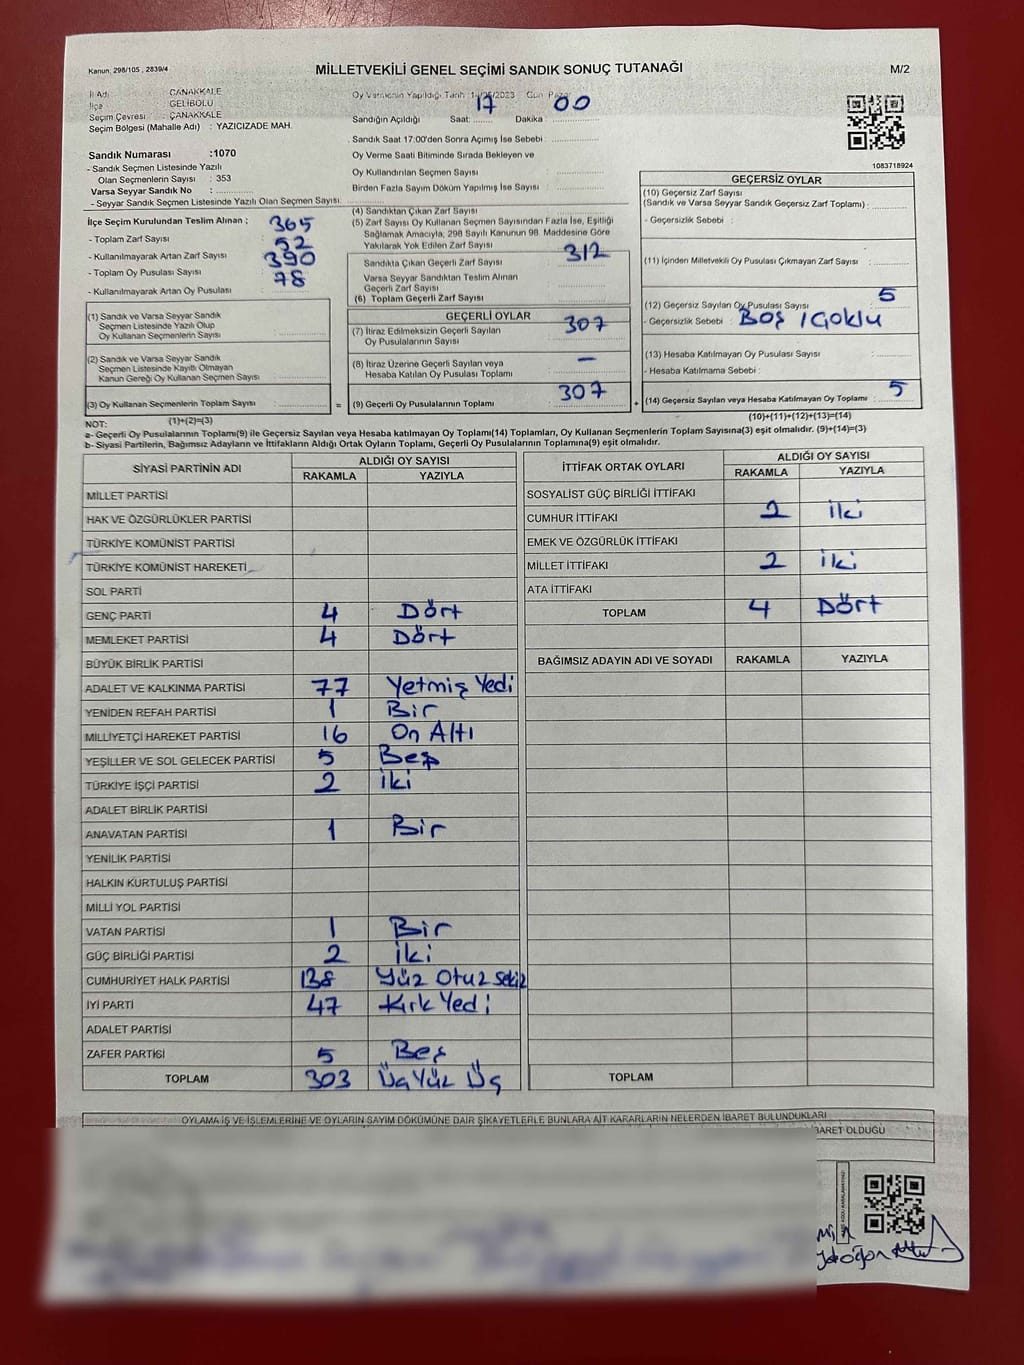 Kanun: 298/105 , 2839/4
MİLLETVEKİLİ GENEL SEÇİMİ SANDIK SONUÇ TUTANAĞI
M/2
İl Adı : ÇANAKKALE
İlçe : GELİBOLU
Seçim Çevresi : ÇANAKKALE
Seçim Bölgesi (Mahalle Adı) : YAZICIZADE MAH.
Sandık Numarası :1070
- Sandık Seçmen Listesinde Yazılı
Olan Seçmenlerin Sayısı : 353
Varsa Seyyar Sandık No :
- Seyyar Sandık Seçmen Listesinde Yazılı Olan Seçmen Sayısı:
Oy Vermenin Yapıldığı Tarih :14/05/2023 Gün Pazar
Sandığın Açıldığı Saat: 17 Dakika : 00
Sandık Saat 17:00'den Sonra Açımış İse Sebebi :
Oy Verme Saati Bitiminde Sırada Bekleyen ve
Oy Kullandırılan Seçmen Sayısı :
Birden Fazla Sayım Döküm Yapılmış İse Sayısı :
1083718924
İlçe Seçim Kurulundan Teslim Alınan ;
- Toplam Zarf Sayısı : 365
- Kullanılmayarak Artan Zarf Sayısı : 52
- Toplam Oy Pusulası Sayısı : 390
- Kullanılmayarak Artan Oy Pusulası : 78
(1) Sandık ve Varsa Seyyar Sandık
Seçmen Listesinde Yazılı Olup
Oy Kullanan Seçmenlerin Sayısı :
(2) Sandık ve Varsa Seyyar Sandık
Seçmen Listesinde Kayıtlı Olmayan
Kanun Gereği Oy Kullanan Seçmen Sayısı :
(3) Oy Kullanan Seçmenlerin Toplam Sayısı :
(1)+(2)=(3)
(4) Sandıktan Çıkan Zarf Sayısı :
(5) Zarf Sayısı Oy Kullanan Seçmen Sayısından Fazla İse, Eşitliği
Sağlamak Amacıyla, 298 Sayılı Kanunun 98. Maddesine Göre
Yakılarak Yok Edilen Zarf Sayısı :
Sandıkta Çıkan Geçerli Zarf Sayısı : 312
Varsa Seyyar Sandıktan Teslim Alınan
Geçerli Zarf Sayısı :
(6) Toplam Geçerli Zarf Sayısı :
GEÇERLİ OYLAR
(7) İtiraz Edilmeksizin Geçerli Sayılan
Oy Pusulalarının Sayısı : 307
(8) İtiraz Üzerine Geçerli Sayılan veya
Hesaba Katılan Oy Pusulası Toplamı : —
= (9) Geçerli Oy Pusulalarının Toplamı : 307
GEÇERSİZ OYLAR
(10) Geçersiz Zarf Sayısı
(Sandık ve Varsa Seyyar Sandık Geçersiz Zarf Toplamı) :
- Geçersizlik Sebebi :
(11) İçinden Milletvekili Oy Pusulası Çıkmayan Zarf Sayısı :
(12) Geçersiz Sayılan Oy Pusulası Sayısı : 5
- Geçersizlik Sebebi : Boş / Çoklu
(13) Hesaba Katılmayan Oy Pusulası Sayısı :
- Hesaba Katılmama Sebebi :
+ (14) Geçersiz Sayılan veya Hesaba Katılmayan Oy Toplamı : 5
(10)+(11)+(12)+(13)=(14)
NOT:
a- Geçerli Oy Pusulalarının Toplamı(9) ile Geçersiz Sayılan veya Hesaba Katılmayan Oy Toplamı(14) Toplamları, Oy Kullanan Seçmenlerin Toplam Sayısına(3) eşit olmalıdır. (9)+(14)=(3)
b- Siyasi Partilerin, Bağımsız Adayların ve İttifakların Aldığı Ortak Oyların Toplamı, Geçerli Oy Pusulalarının Toplamına(9) eşit olmalıdır.
SİYASİ PARTİNİN ADI
ALDIĞI OY SAYISI
RAKAMLA YAZIYLA
MİLLET PARTİSİ
HAK VE ÖZGÜRLÜKLER PARTİSİ
TÜRKİYE KOMÜNİST PARTİSİ
TÜRKİYE KOMÜNİST HAREKETİ
SOL PARTİ
GENÇ PARTİ 4 Dört
MEMLEKET PARTİSİ 4 Dört
BÜYÜK BİRLİK PARTİSİ
ADALET VE KALKINMA PARTİSİ 77 Yetmiş Yedi
YENİDEN REFAH PARTİSİ 1 Bir
MİLLİYETÇİ HAREKET PARTİSİ 16 On Altı
YEŞİLLER VE SOL GELECEK PARTİSİ 5 Beş
TÜRKİYE İŞÇİ PARTİSİ 2 iki
ADALET BİRLİK PARTİSİ
ANAVATAN PARTİSİ 1 Bir
YENİLİK PARTİSİ
HALKIN KURTULUŞ PARTİSİ
MİLLİ YOL PARTİSİ
VATAN PARTİSİ 1 Bir
GÜÇ BİRLİĞİ PARTİSİ 2 iki
CUMHURİYET HALK PARTİSİ 138 Yüz Otuz Sekiz
İYİ PARTİ 47 Kırk Yedi
ADALET PARTİSİ
ZAFER PARTİSİ 5 Beş
TOPLAM 303 Üç Yüz Üç
İTTİFAK ORTAK OYLARI
ALDIĞI OY SAYISI
RAKAMLA YAZIYLA
SOSYALİST GÜÇ BİRLİĞİ İTTİFAKI
CUMHUR İTTİFAKI 2 iki
EMEK VE ÖZGÜRLÜK İTTİFAKI
MİLLET İTTİFAKI 2 iki
ATA İTTİFAKI
TOPLAM 4 Dört
BAĞIMSIZ ADAYIN ADI VE SOYADI RAKAMLA YAZIYLA
TOPLAM
OYLAMA İŞ VE İŞLEMLERİNE VE OYLARIN SAYIM DÖKÜMÜNE DAİR ŞİKAYETLERLE BUNLARA AİT KARARLARIN NELERDEN İBARET BULUNDUKLARI
BARET OLDUĞU